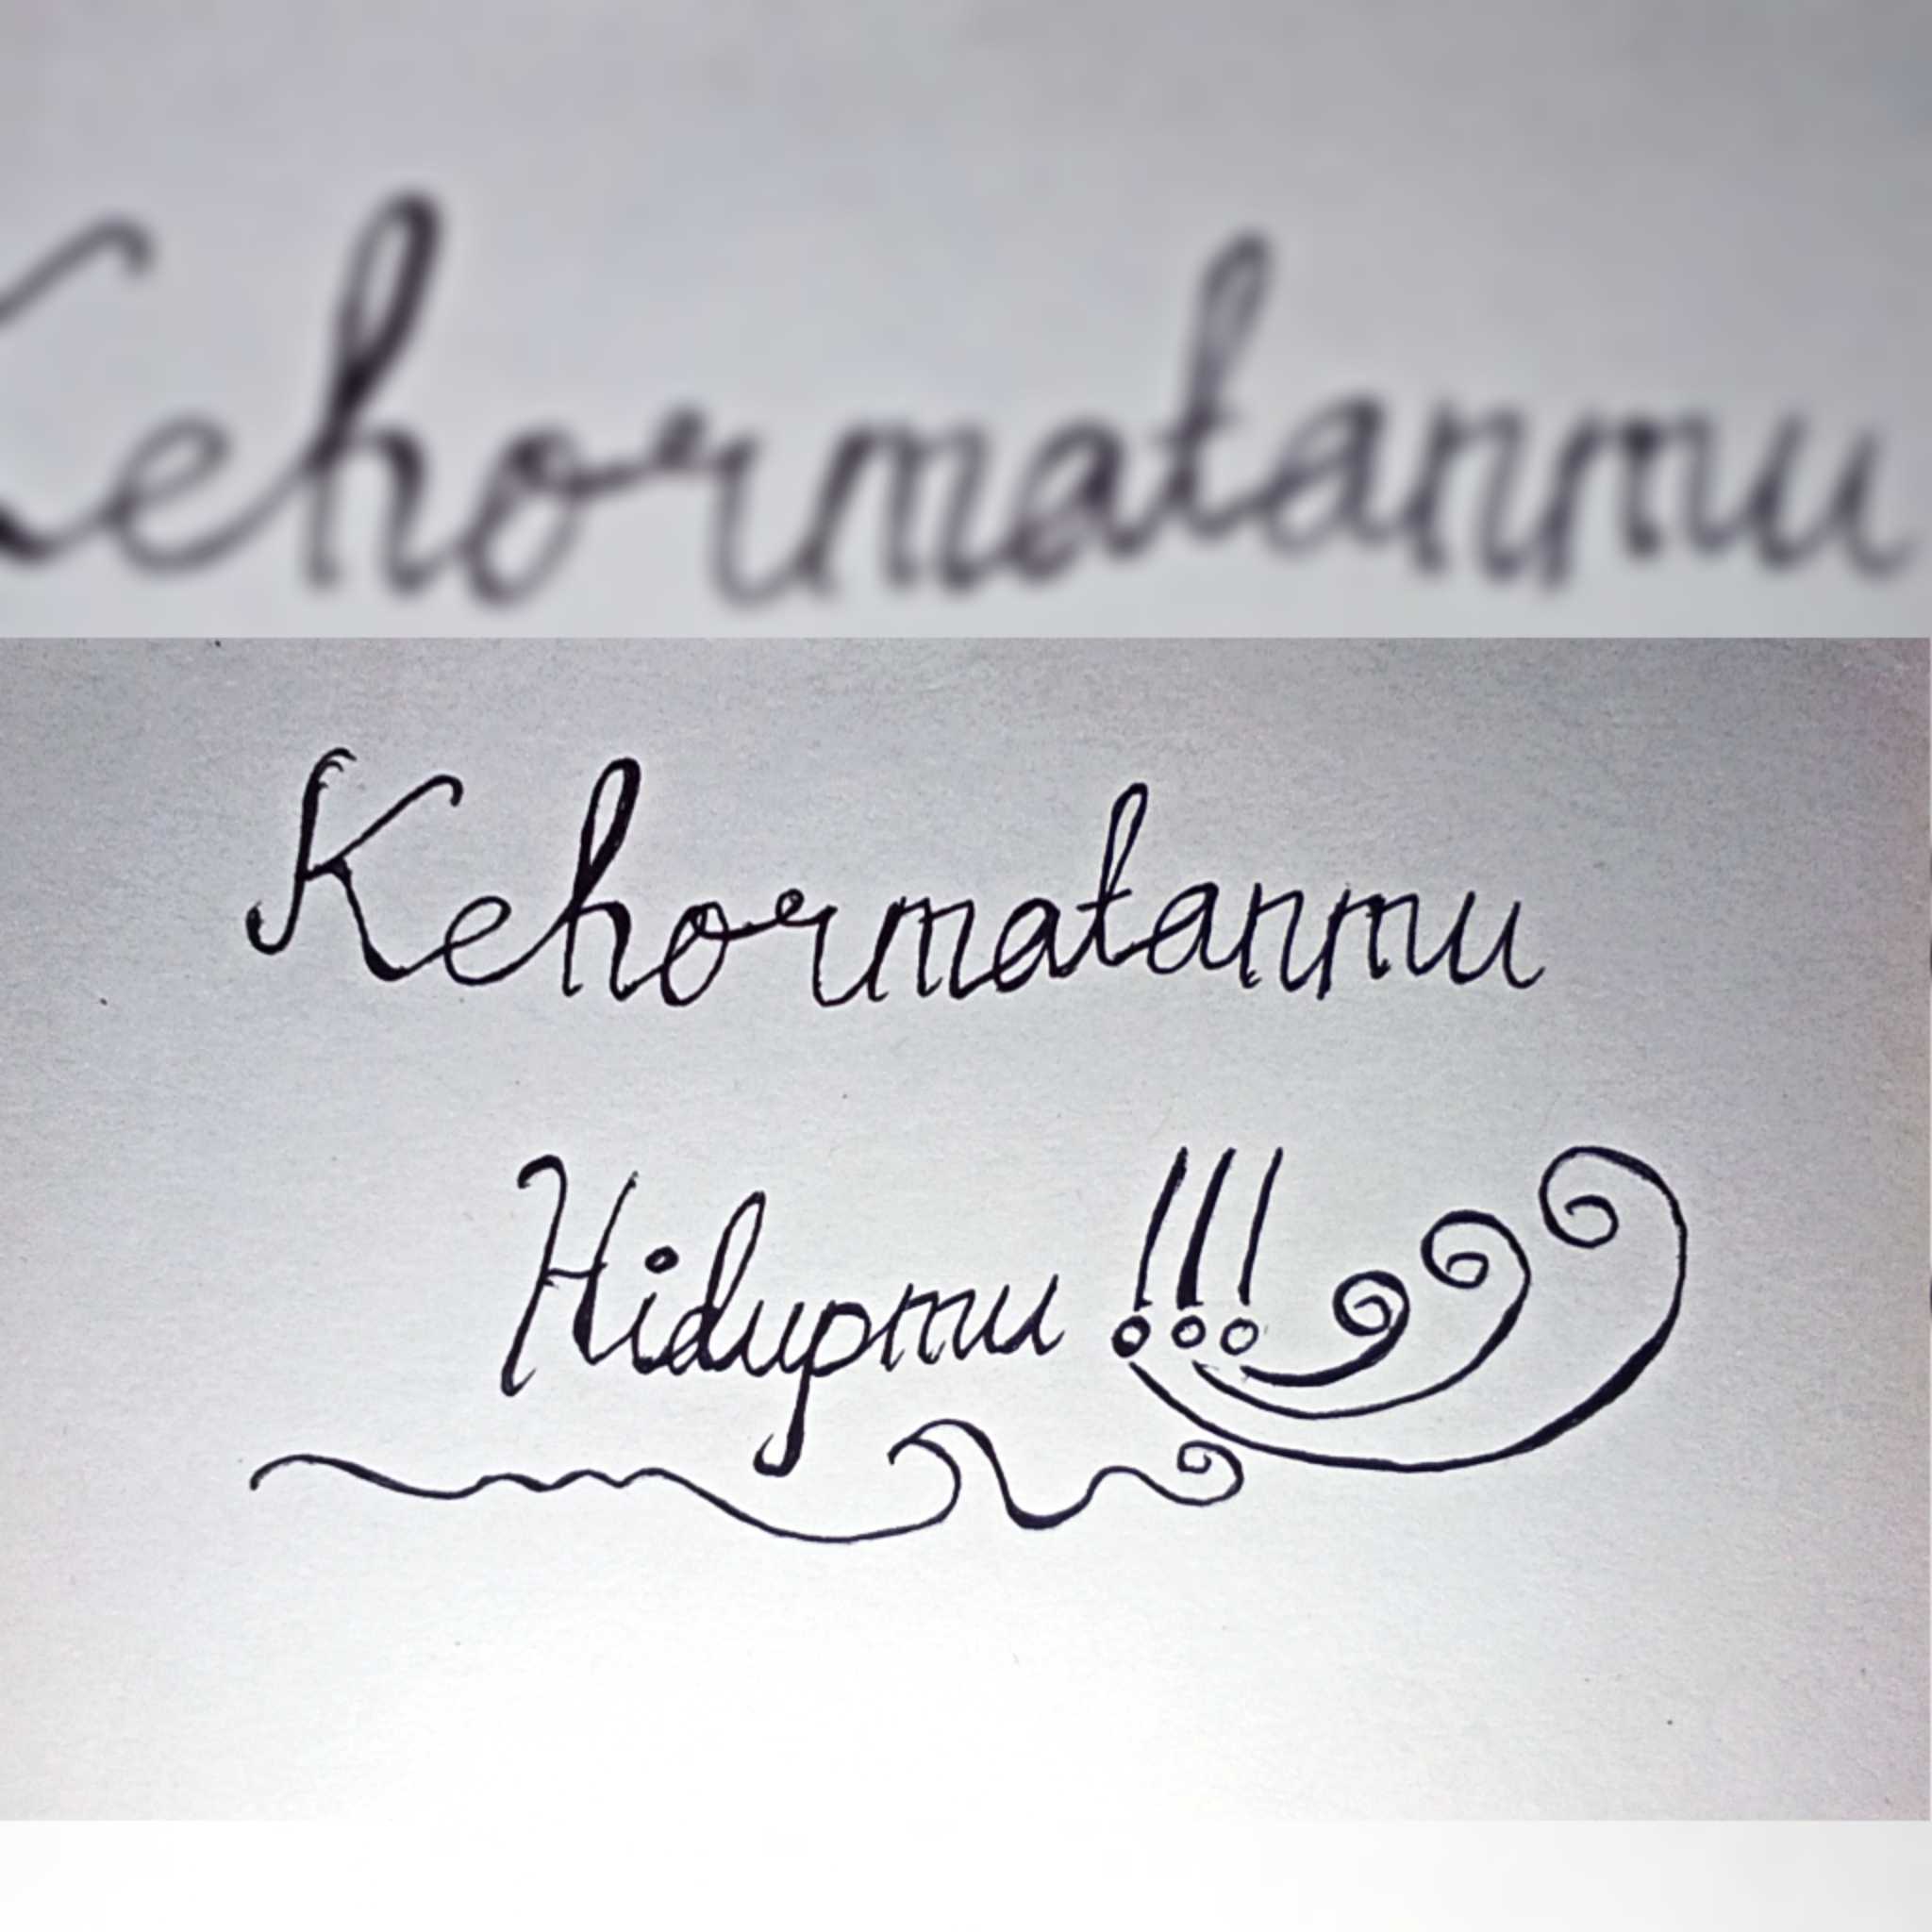 Kehormatanmu
Kehormatanmu
Hidupmu !!!